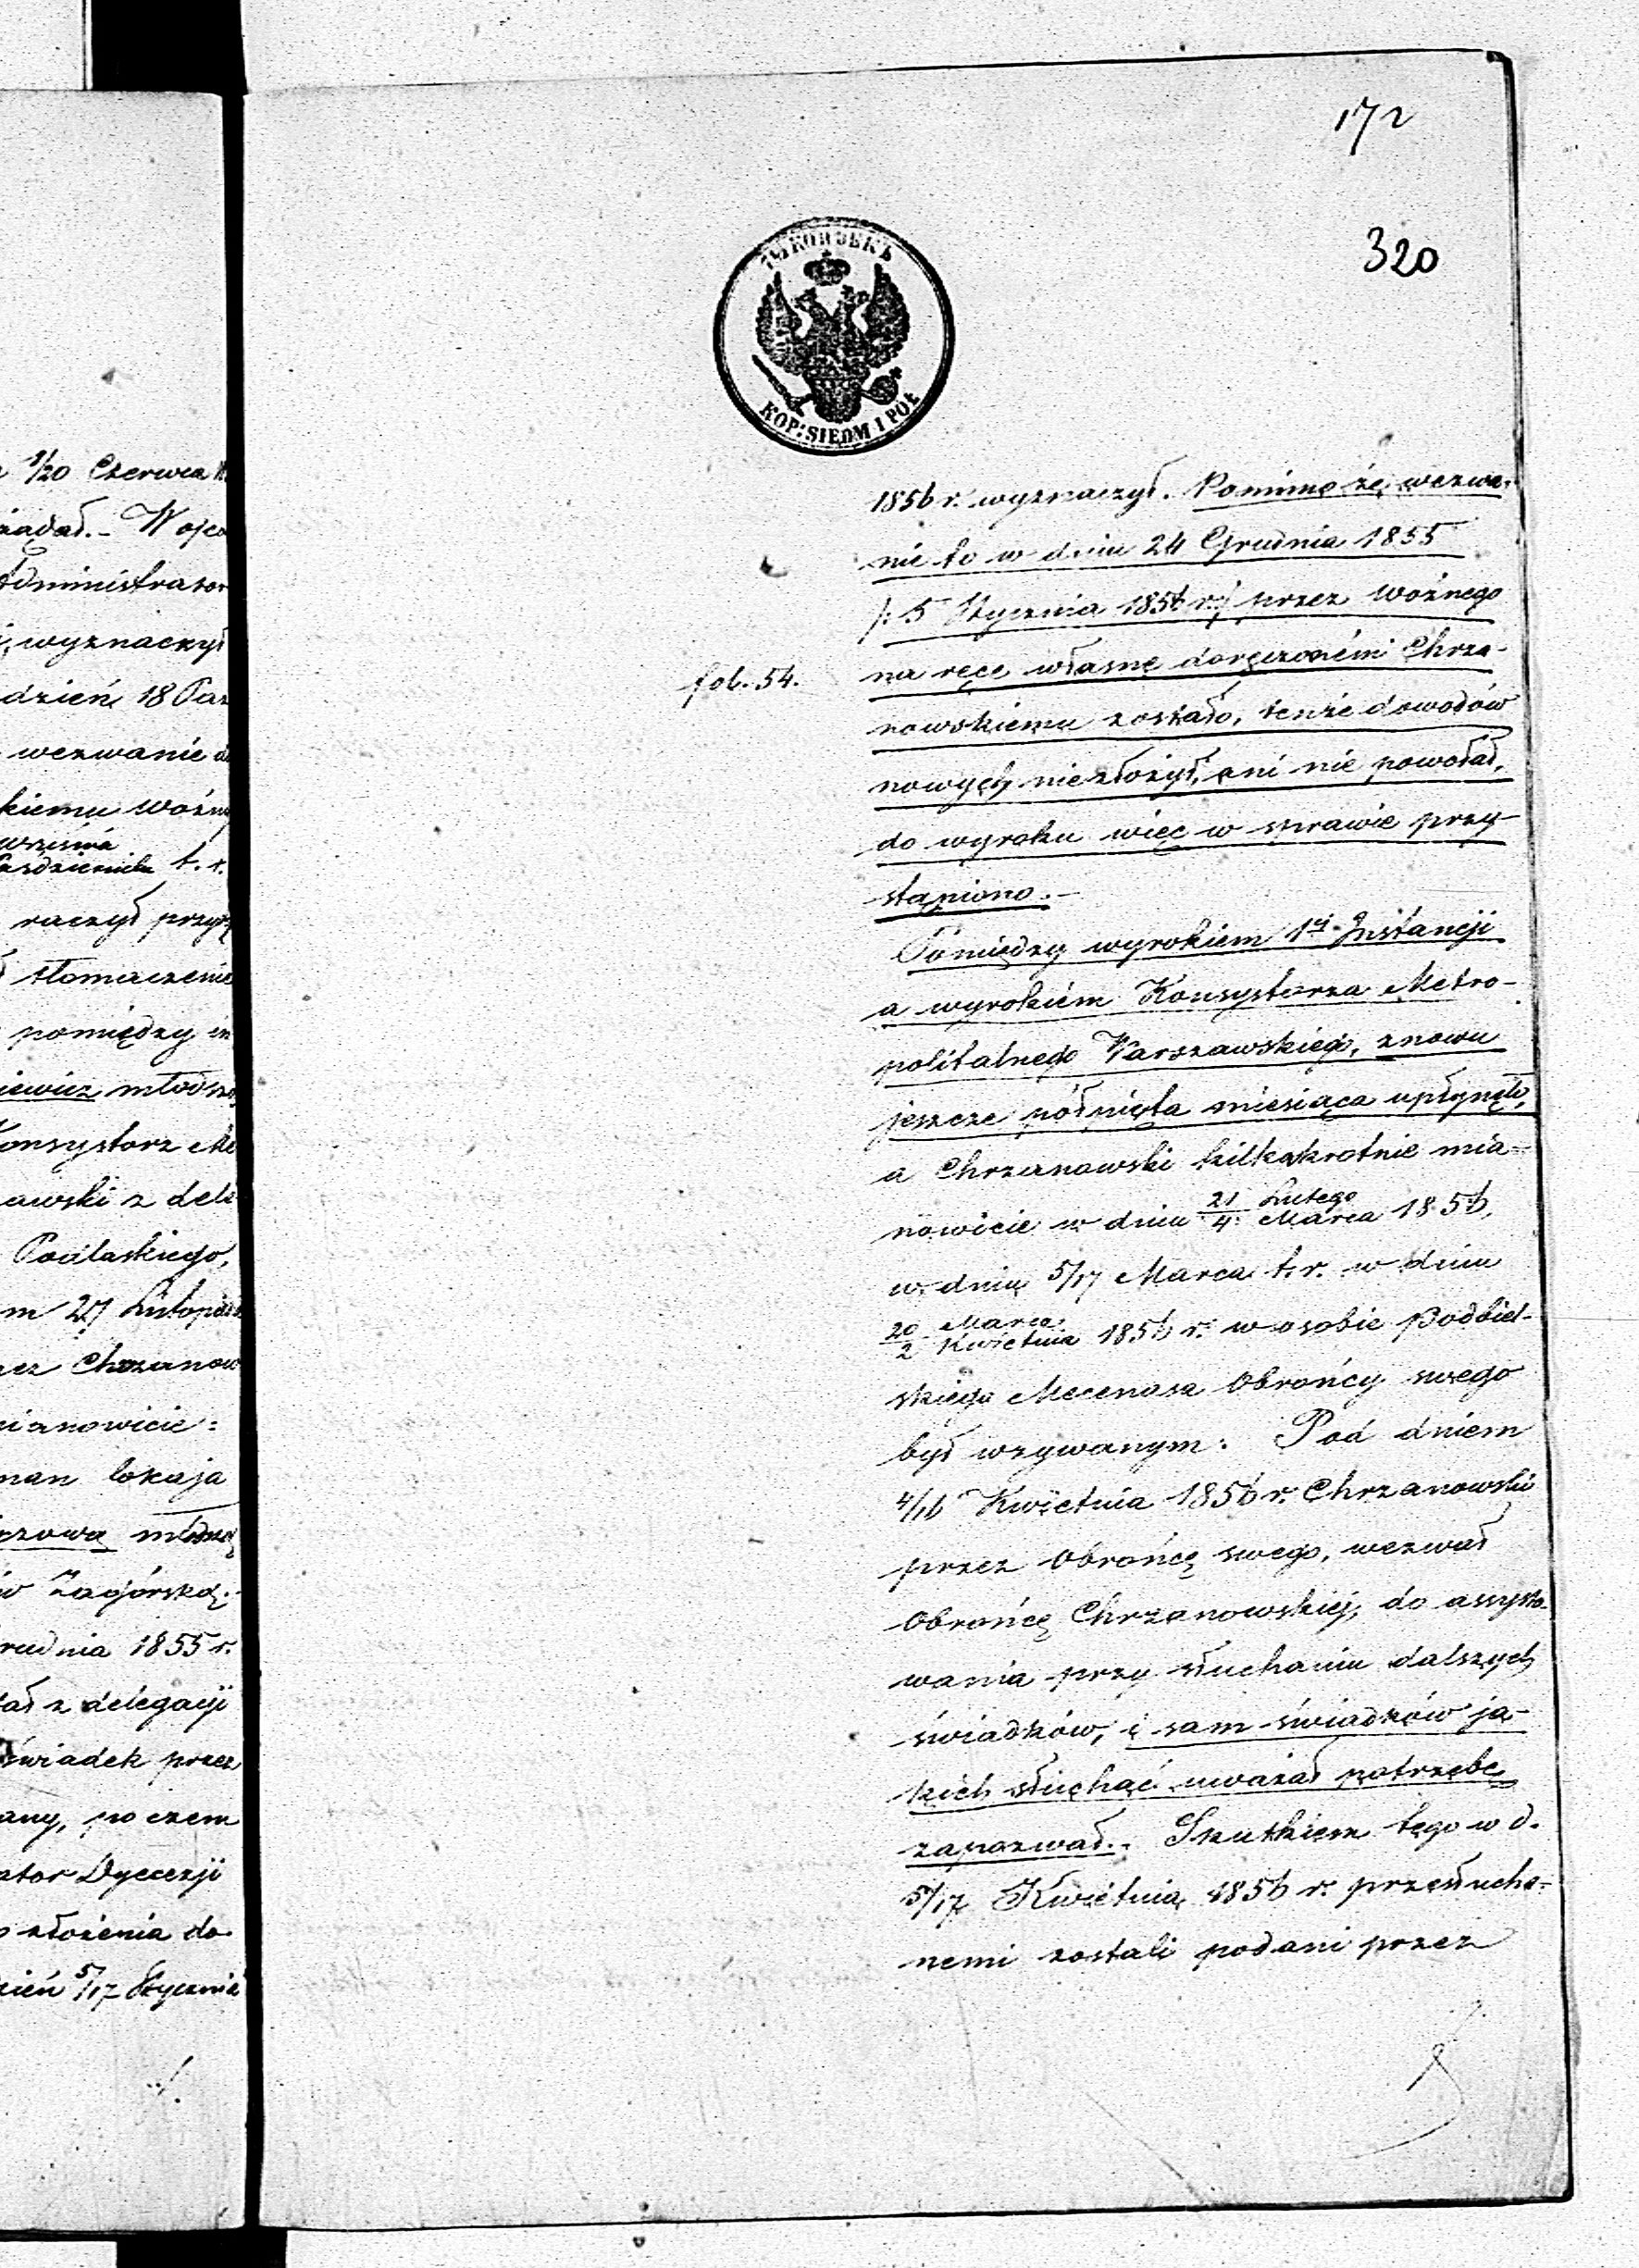 172
320
KOP: SIEDM I PÓŁ
1/20 Czerwca
żądał. - Wojco
Administrator
wyznaczył
dzień 18 Paz
wezwanie
kiemu woźn
września
Października t. r.
raczył przy
tłomaczenie
pomiędzy in
iewicz młodsz
Konsystorz Me
awski z dele
Podlaskiego,
m 27 Listopad
zez Chrzanow
mianowicie:
man lokaja
rzową młodszą
w Zagórską.
rudnia 1855 r.
łał z delegacji
świadek przez
any, po czem
ator Dyecezji
złożenia do-
zień 5/17 Stycznia
1856 r. wyznaczył. Pomimo że wezwa-
nie to w dniu 24 Grudnia 1855
/: 5 Stycznia 1856 r:/ przez Woźnego
fol. 54.
na ręce własne doręczoném Chrza-
nowskiemu zostało, tenże dowodów
nowych nie złożył, ani nie powołał,
do wyroku więc w sprawie przy-
stąpiono. -
Pomiędzy wyrokiem 1éj Instancji
a wyrokiem Konsystorza Metro-
politalnego Warszawskiego, znowu
jeszcze półpięta miesiąca upłynęło,
a Chrzanowski kilkakrotnie mia-
nowicie w dniu 21/4 Lutego/Marca 1856,
w dniu 5/17 Marca t. r. w dniu
20/2 Marca/Kwietnia 1856 r. w osobie Podbiel-
skiego Mecenasa Obrońcy swego
był wzywanym. Pod dniem
4/16 Kwietnia 1856 r. Chrzanowski
przez Obrońcę swego, wezwał
Obrońcę Chrzanowskiej, do assysto-
wania przy słuchaniu dalszych
świadków, i sam świadków ja-
kich słuchać uważał potrzebę
zapozwał. Skutkiem tego w d.
5/17 Kwietnia 1856 r. przesłucha-
nemi zostali podani przez